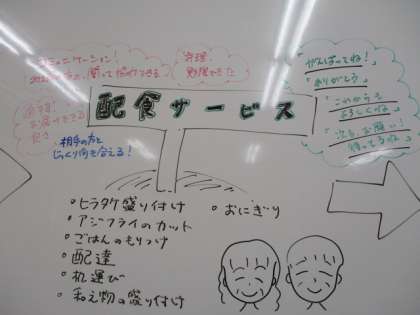 コミュニケーション!
料理
勉強できた
がんばってね!
ありがとう
これからも
よろしくね
次も、お願い!
待ってるね
お届けできる
配食サービス
相手の方と
じっくり向き合える!
・ヒラタケ盛り付け
・アジフライのカット
・ごはんのもりつけ
・配達
・机運び
・和え物の盛り付け
・おにぎり